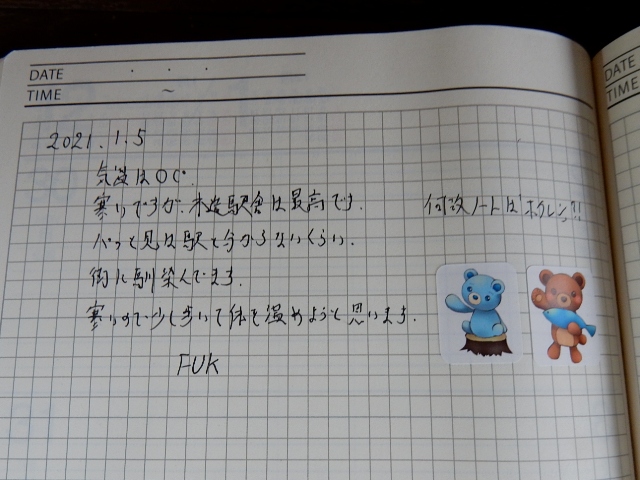 DATE . . .
TIME ~
2021.1.5
気温は0℃.
寒いですが、木造駅舎は最高です.
何故ノートは"ホクレン"?!
パッと見は駅と分からないくらい.
街に馴染んでます.
寒いので少し歩いて体を温めようと思います.
FUK
DATE
TIME